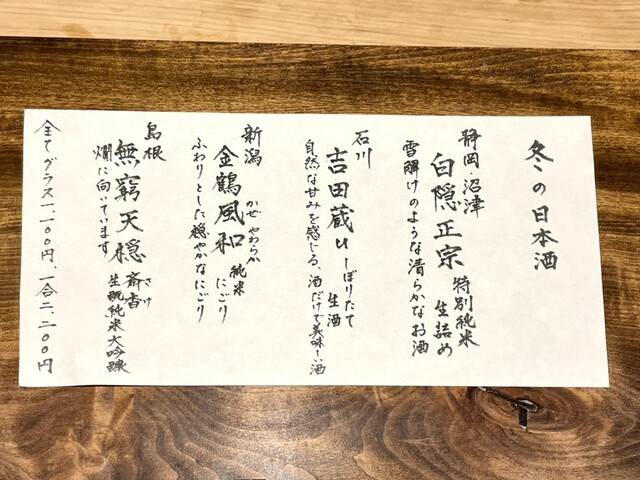 冬の日本酒
静岡・沼津
白隠正宗 特別純米 生詰め
雪解けのような清らかなお酒
石川
吉田蔵u しぼりたて 生酒
自然な甘みを感じる、酒だけで美味しい酒
新潟
金鶴風和 かぜやわらか 純米 にごり
ふわりとした穏やかなにごり
島根
無窮天穏 斎香 さけ 生酛純米大吟醸
燗に向いています
全てグラス一、一〇〇円、一合二、二〇〇円